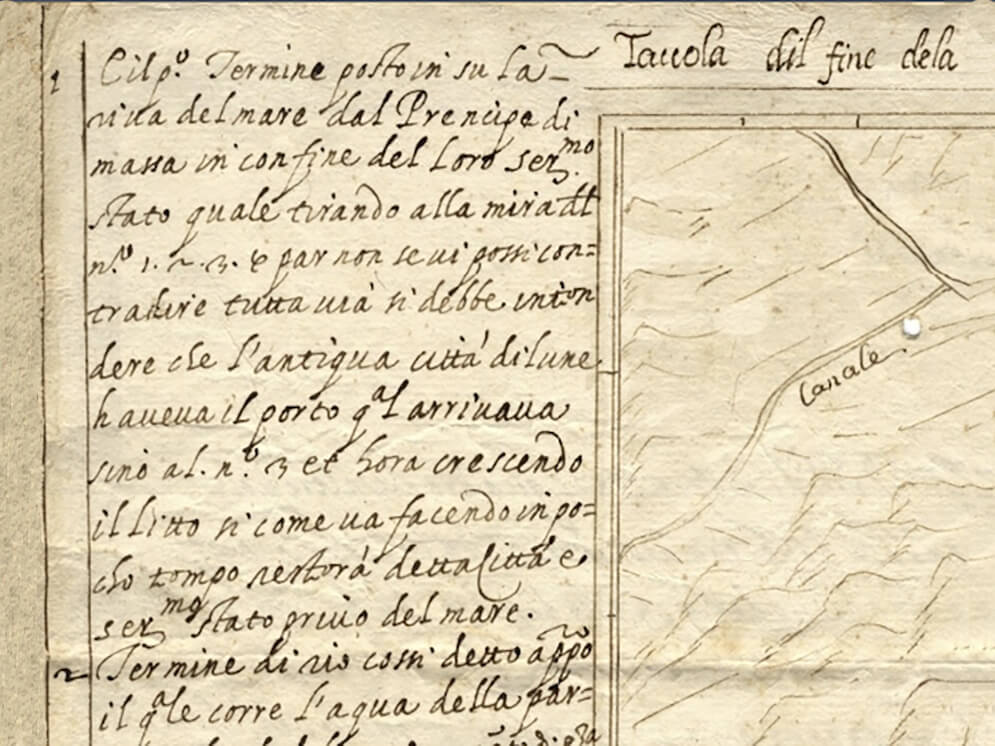 Taccola dil fine dela
1 È il p.º Termine posto in su la
riva del mare dal Prencipe di
massa in confine del Loro ser.mo
stato quale tirando alla mira dll
n.º 1. 2. 3. e par non se vi possi con=
tradire tutta uià si debbe inton
dere che l'antiqua città di lune
haueua il porto q.al arriuaua
sino al. n.º 3 et hora crescendo
il litto si come ua facendo in po=
cho tempo restorà detta Città e
ser.mo stato priuo del mare.
2 Termine di rio cossi detto appo
il q.ale corre l'aqua della par=
Canale